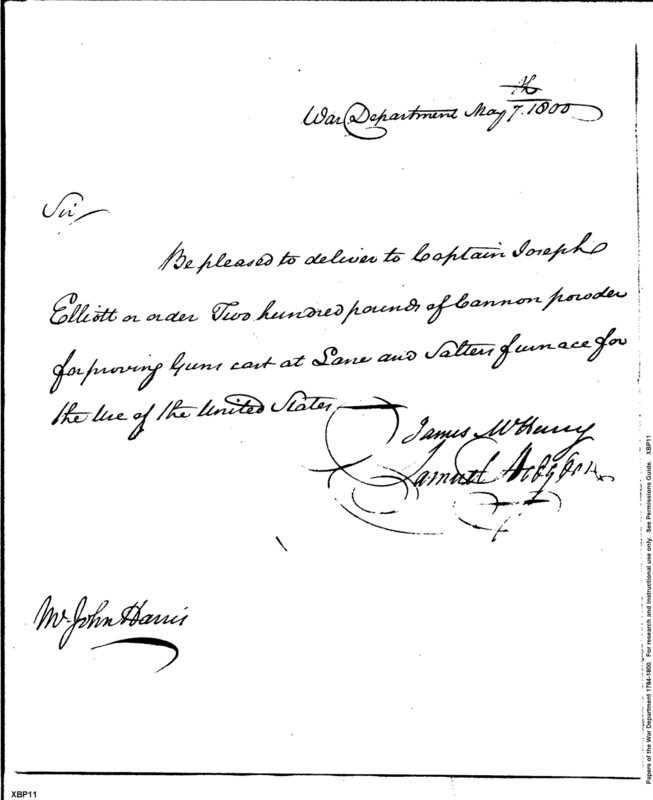 War Department May 7th. 1800
Sir
Be pleased to deliver to Captain Joseph
Elliott or order Two hundred pounds of Cannon powder
for proving Guns cast at Lane and Salters furnace for
the Use of the United States
James McHenry
Samuel Hodgdon
Mr. John Harris
XBP11
Papers of the War Department 1784-1800. For research and instructional use only. See Permissions Guide. XBP11